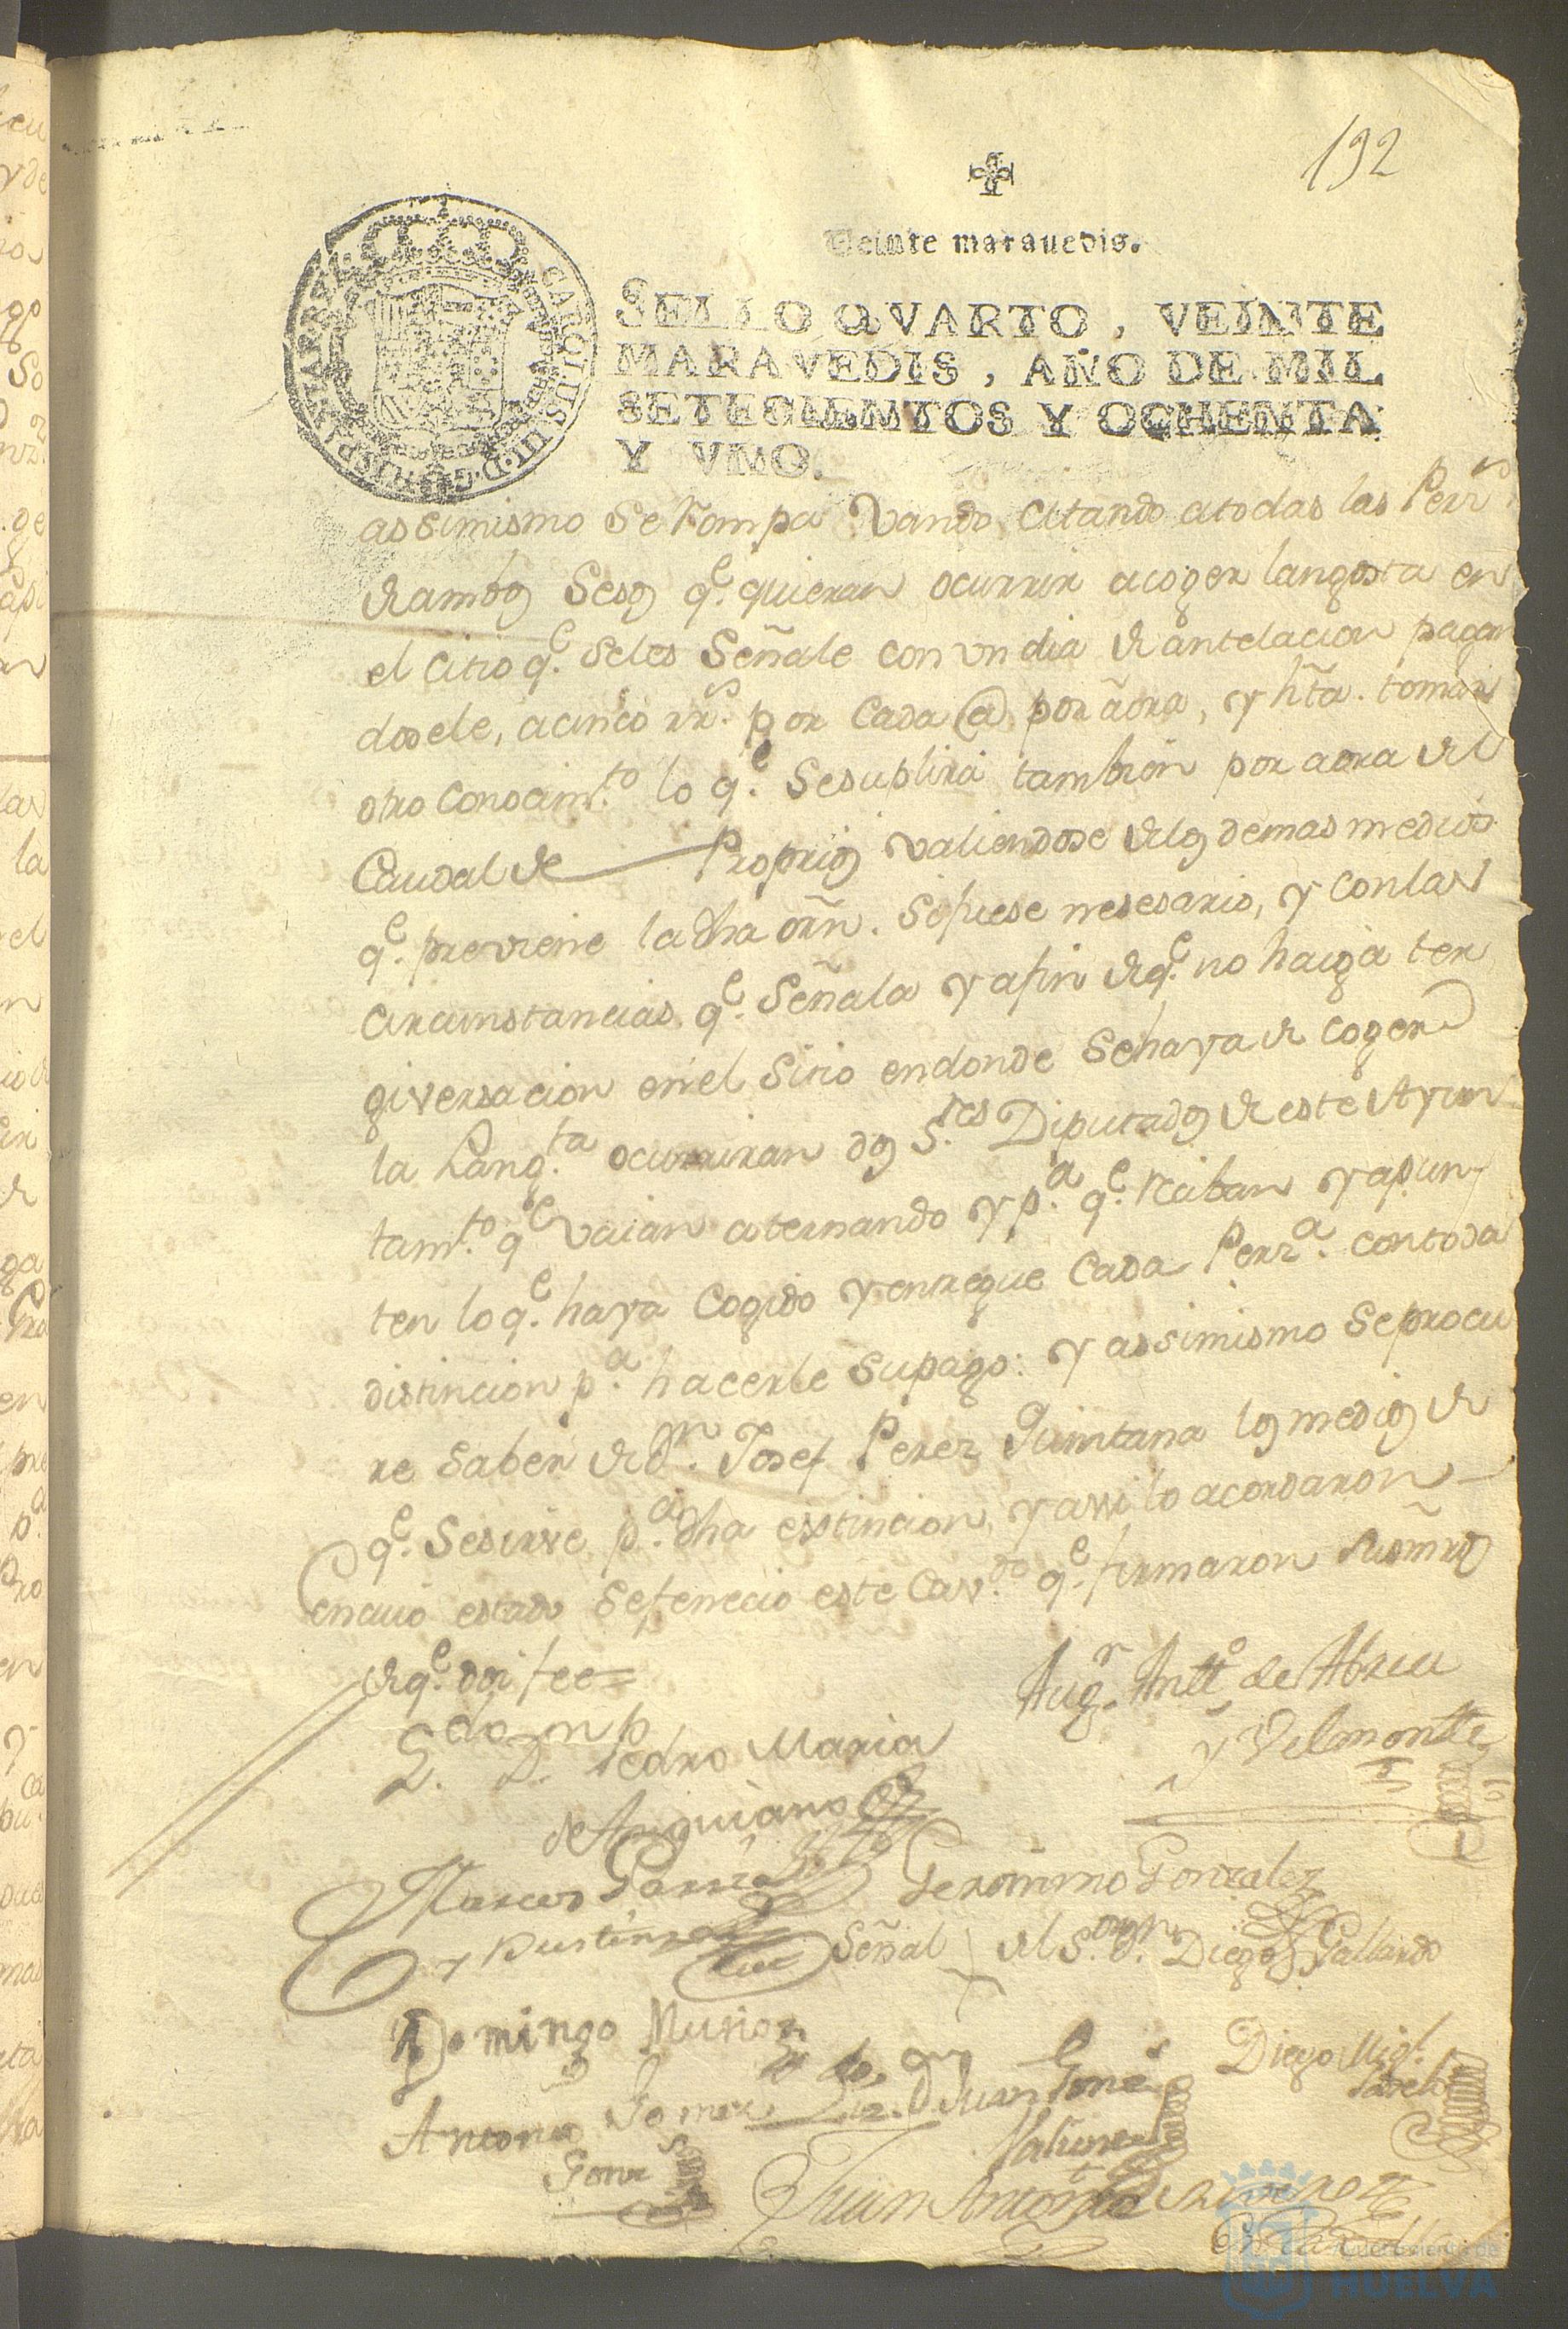 192
Veinte marauedis.
SELLO QVARTO, VEINTE
MARAVEDIS, AÑO DE MIL
SETECIENTOS Y OCHENTA
Y VNO.
CAROLUS III D G HISPANIAR
assimismo se rompa Vando, citando atodas las Perr.s
de ambos Sesos q.e quieran ocurrir acoger langosta en
el citio q.e seles Señale con vn dia de antelacion pagan
dosele, a cinco rr.s por cada @ por aora, y hta. tomar
otro conocim.to lo q.e se suplirá tambien por aora del
Caudal de Proprios valiendose delos demas medios
q.e previene la dha orn. si fuese nesesario, y con las
circunstancias q.e Señala y afin de q.e no haiga ter
giversacion en el sitio endonde se haya de coger
la Lang.ta ocurriran dos S.res Diputados de este Ayun
tam.to q.e vaian alternando y p.a q.e reciban y apun
ten lo q.e haya cogido y entregue cada Perr.a con toda
distincion p.a hacerle su pago: y assimismo se procu
re saber de d.n Josef Perez Quintana los medios de
q.e se sirve p.a dha extincion, y assi lo acordaron
en cuio estado se fenecio este Cav.do q.e firmaron sus mrds
de q.e doi fee=
L.do D.n Pedro Maria
de Anguiano
Aug.n Antt.o de Abreu
y Velmonte
Marcos Garzia
y Bustinza
Geronimo Gonzalez
Señal del S.or d.n Diego Gallardo
Domingo Muñoz
Diego Mig.l
Antonio Gomez
Gonz.s
Liz.do d.n Juan
Juan Antonio
Ayuntamiento de
HUELVA